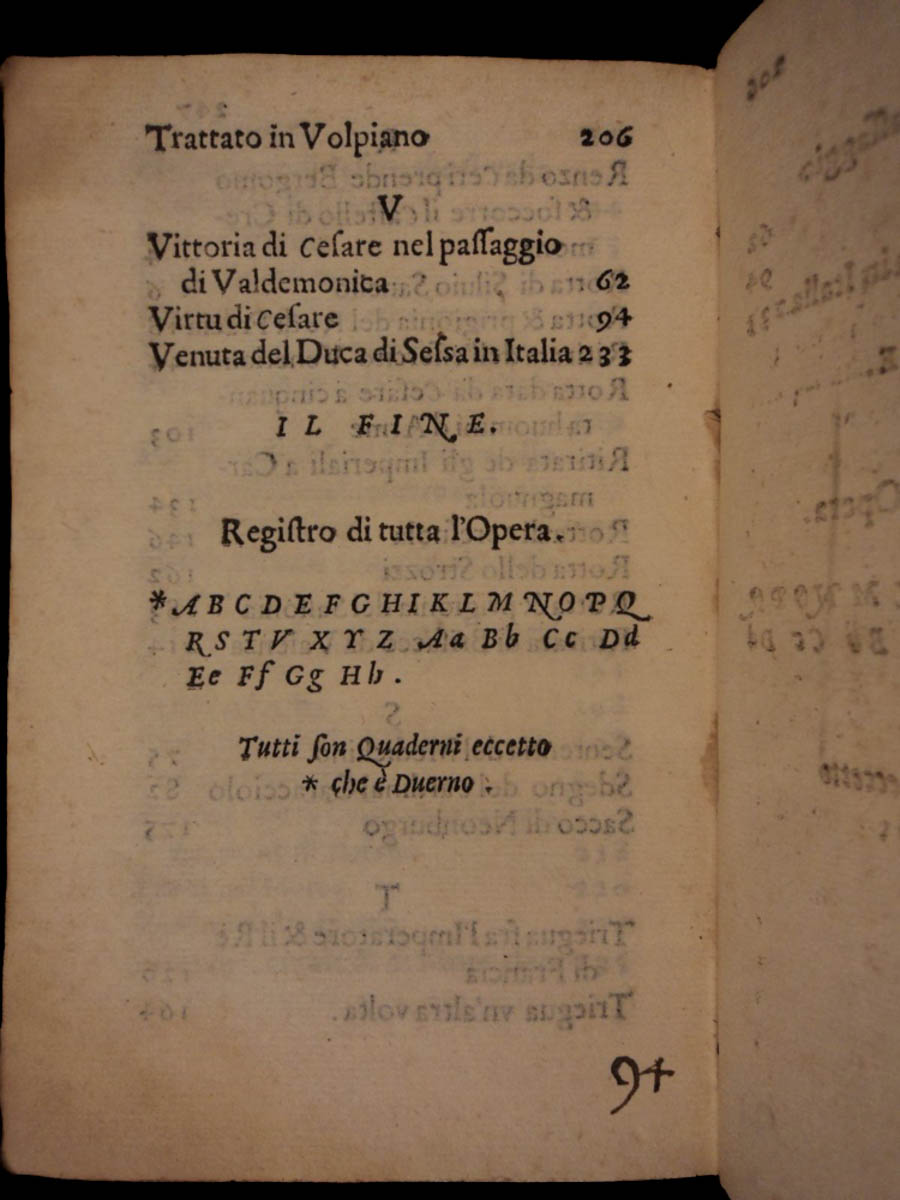 Trattato in Volpiano 206
V
Vittoria di Ceſare nel paſſaggio
di Valdemonica 62
Virtu di Ceſare 94
Venuta del Duca di Seſsa in Italia 233
IL FINE.
Regiſtro di tutta l'Opera.
* A B C D E F G H I K L M N O P Q
R S T V X Y Z Aa Bb Cc Dd
Ee Ff Gg Hh .
Tutti ſon Quaderni eccetto
* che è Duerno .
94